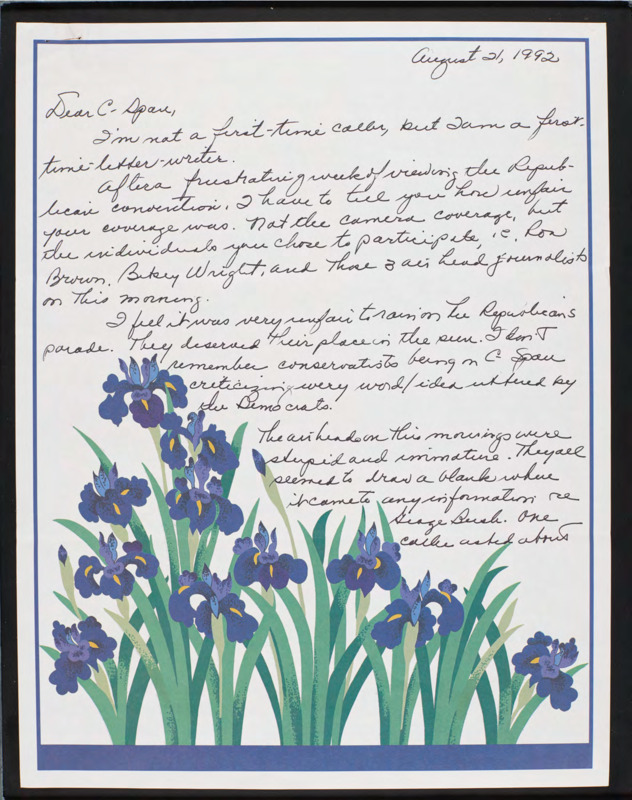 August 21, 1992
Dear C-Span,
I'm not a first-time caller, but I am a first-
time-letter-writer.
After a frustrating week of viewing the Repub-
lican convention, I have to tell you how unfair
your coverage was. Not the camera coverage, but
the individuals you chose to participate, i.e. Ron
Brown, Betsey Wright, and those 3 air head journalists
on this morning.
I feel it was very unfair to rain on the Republicans
parade. They deserved their place in the sun. I don't
remember conservatists being on C Span
criticizing every word/idea uttered by
the Democrats.
The airheads on this mornings were
stupid and immature. They all
seemed to draw a blank when
it came to any information re
George Bush. One
caller asked about